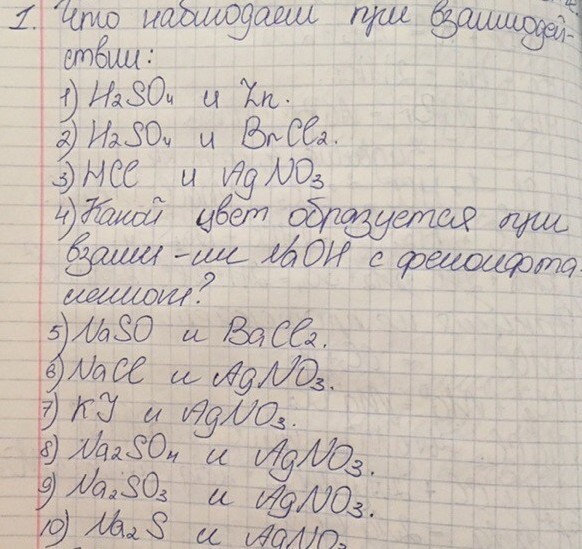 1. Что наблюдаем при взаимодей-
ствии:
1) H2SO4 и Zn.
2) H2SO4 и BrCl2.
3) HCl и AgNO3
4) Какой цвет образуется при
взаим-ии NaOH с фенолфта-
леином?
5) NaSO и BaCl2.
6) NaCl и AgNO3.
7) KJ и AgNO3.
8) Na2SO4 и AgNO3.
9) Na2SO3 и AgNO3.
10) Na2S и AgNO3